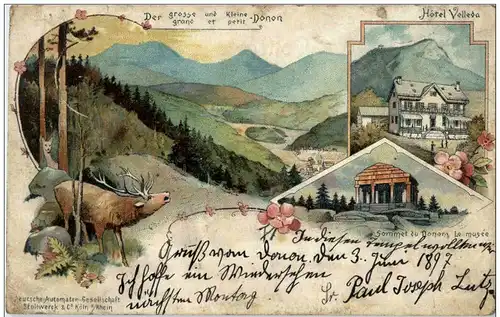 Der grosse und Kleine Donon
grand et petit
Hôtel Velleda
Sommet du Donon, Le musée
In diesen Tempel wollten wir
Gruß vom Donon, den 3. Juni 1897
Ich hoffe ein Wiedersehen
nächsten Montag
Ihr Paul Joseph Lutz
Deutsche Automaten-Gesellschaft
Stollwerck & Co Köln a/Rhein